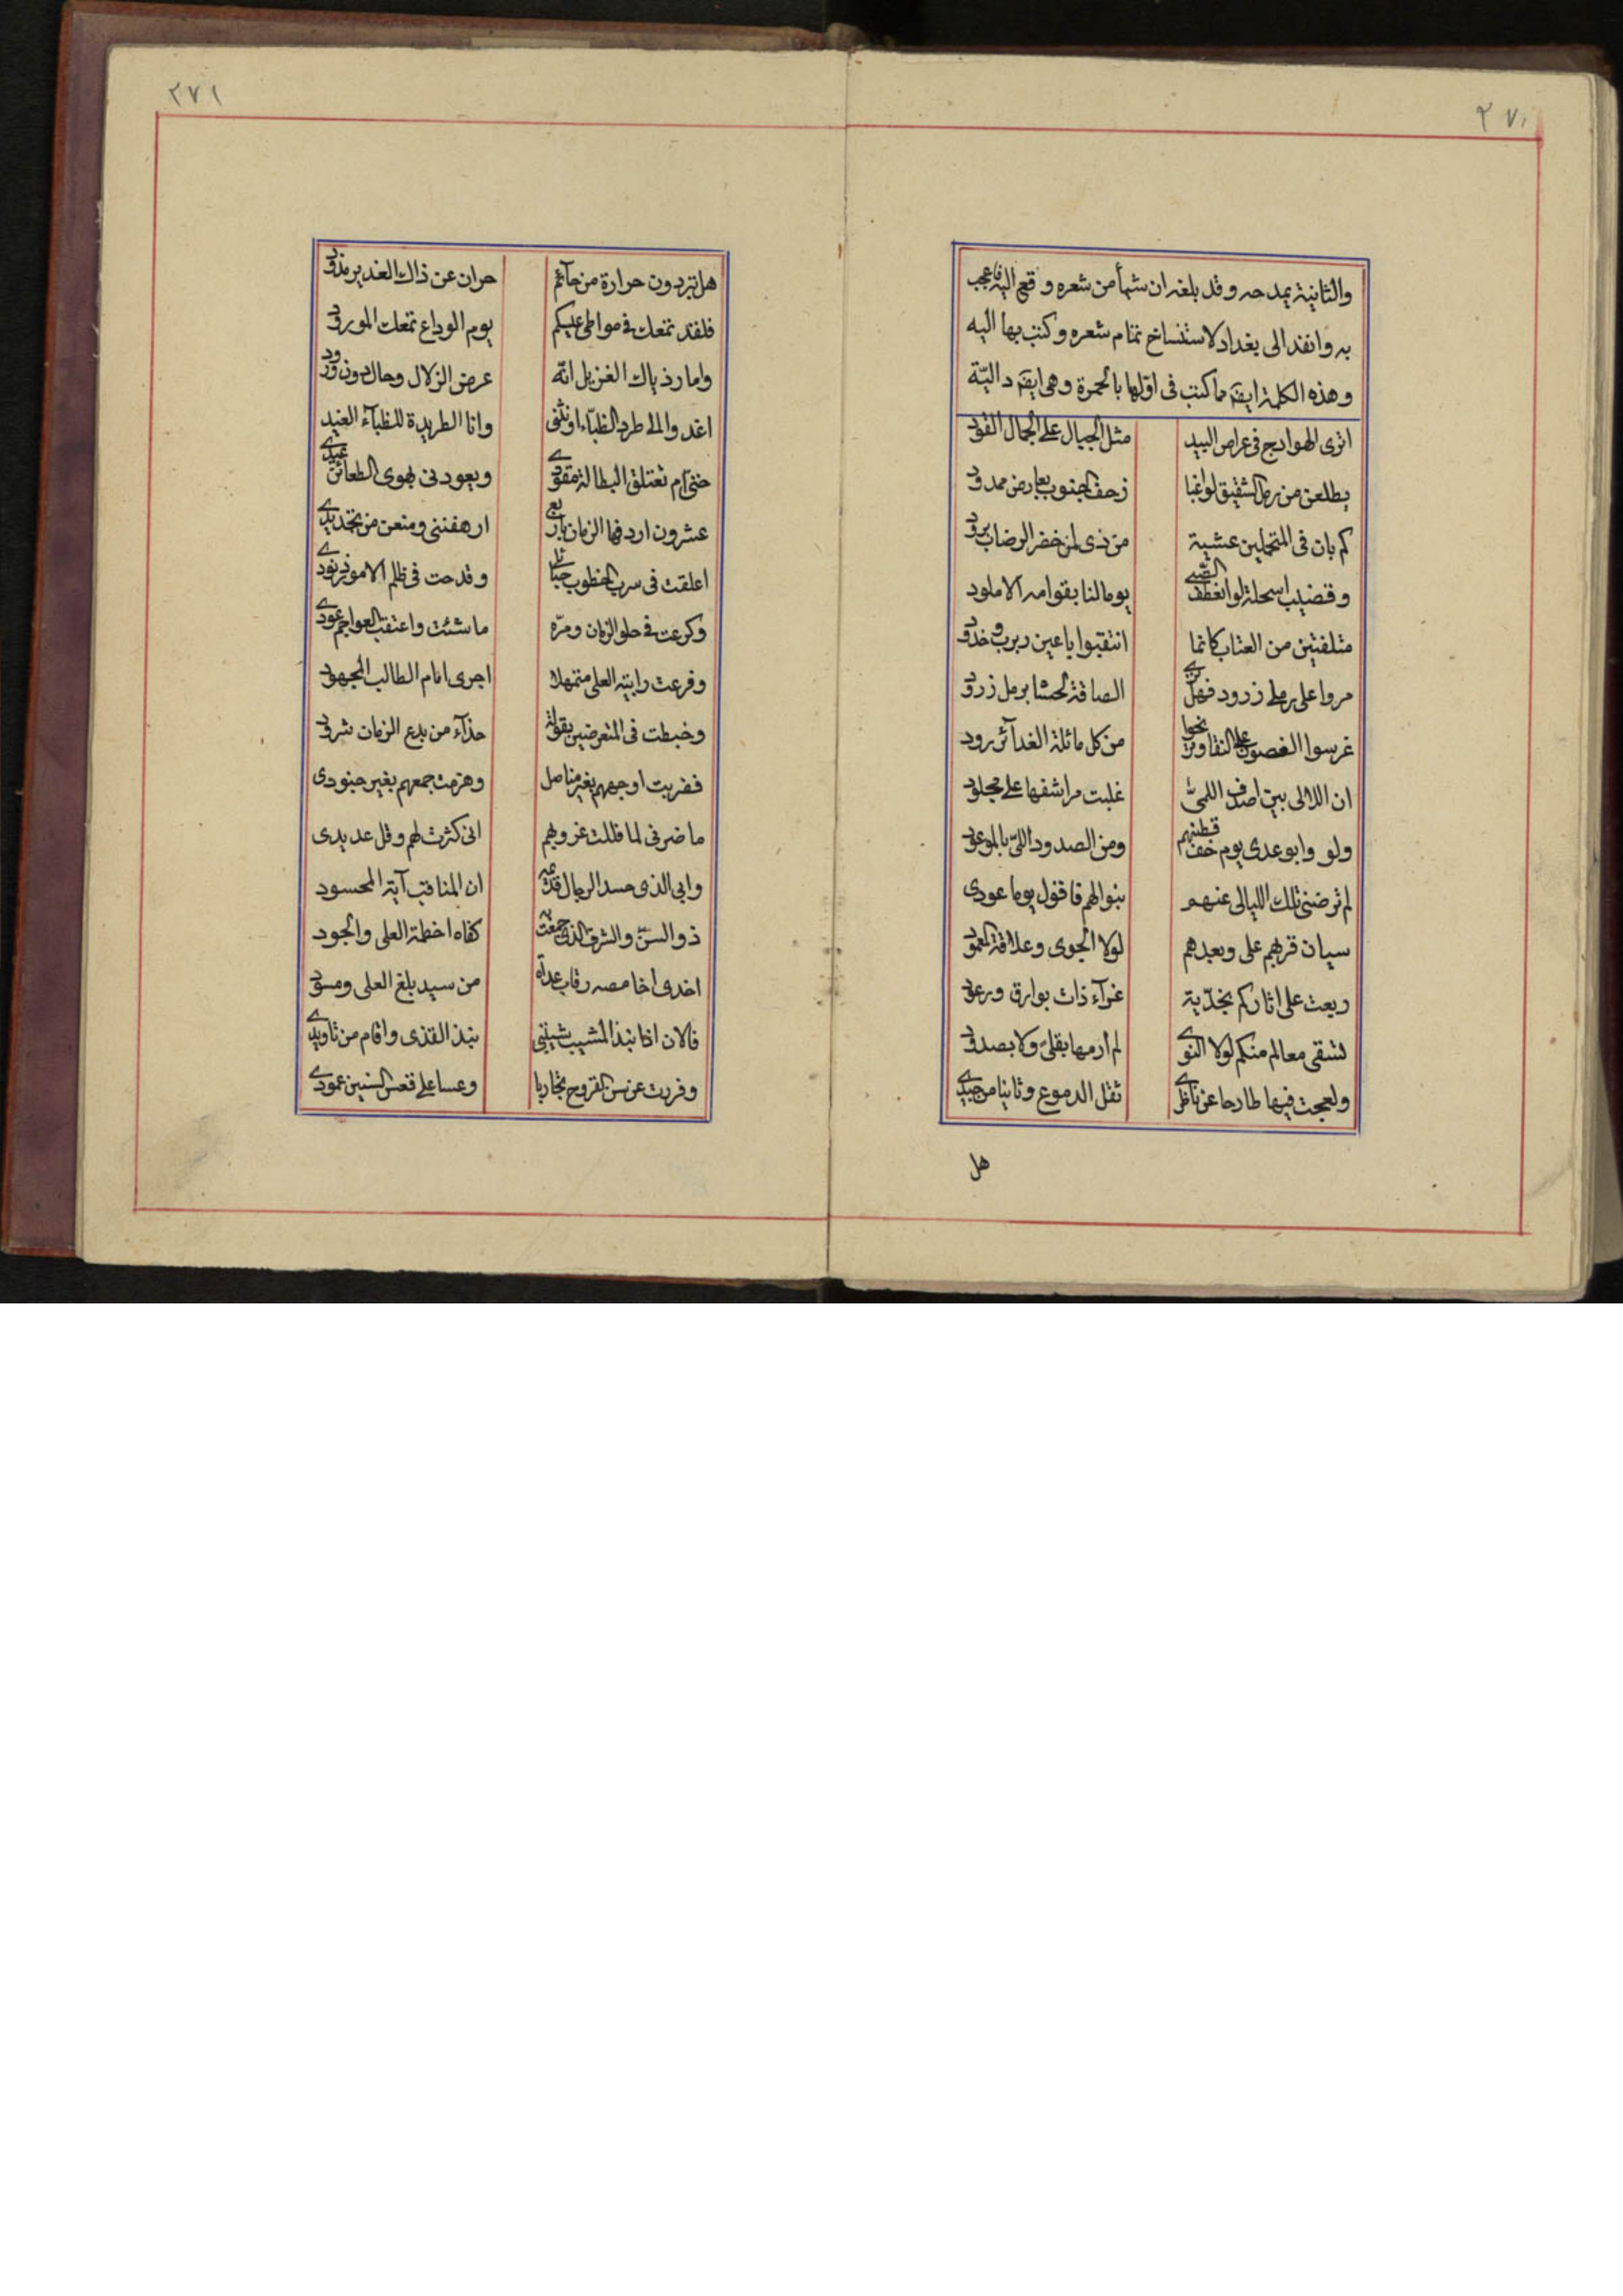 ٢٧٠
والثانية يمدحه وقد بلغه ان شيأ من شعره وقع اليه فاعجب
به وانفذ الى بغداد لاستنساخ تمام شعره وكتب بها اليه
وهذه الكلمة ايضا مما كتب فى اولها بالحمرة وهى ايضا دالية
اترى الهوادج فى عراص البيد مثل الجبال على الجمال القود
يطلعن من رمل الشقيق لواغبا زحف الجنوب بعارض ممدود
كم بان فى المتحملين عشية من ذى لمى خضر الرضاب برود
وقضيب اسحلة لو انعطف الصبى يوما لنا بقوامه الاملود
متلفتين من العتاب كانما انتقبوا باعين ربرب وخدود
مروا على رملى زرود فهل ترى الصاقة لحشا برمل زرود
غرسوا الغصون على النقا وترنحوا من كل مائلة الغدائر رود
ان اللالى بين اصداف اللمى غلبت مراشفها على مجلود
ولووا بوعدى يوم خف قطينهم ومن الصدود اللى بالموعود
لم ترضنى تلك الليالى عنهم بنوالهم فاقول يوما عودى
سيان قربهم على وبعدهم لولا الجوى وعلاقة المعمود
ربعت على اثاركم نجدية غرآء ذات بوارق ورعود
لسقى معالم منكم لولا النوى لم ارمها بقلى ولا بصدود
ولعجت فيها طارحا عن ناظرى ثقل الدموع وثانيا من جيدى
هل
٢٧١
هل تبردون حرارة من حآئم حران عن ذاك الغدير مذود
فلقد تمعك فى مواطئ عيسكم يوم الوداع تمعك المورود
واما وذياك الغزيل انه عرض الزلال وحال دون ورود
اغدو الى طرد الظبآء وانثنى وانا الطريدة للظبآء الغيد
حتى م تعتلق البطالة مقودى ويعودنى لهوى الظعائن عيدى
عشرون اردفها الزمان باربع ارهفننى ومنعن من تجديدى
اعلقت فى سرب الخطوب حبائلى وقدحت فى ظلم الامور زنودى
وكرعت فى حلو الزمان ومره ما شئت واعتقب العواجم عودى
وفرعت رابية العلى متمهلا اجرى امام الطالب المجهود
وخبطت فى المتعرضين بقولة حذآء من بدع الزمان شرود
فضربت اوجههم بغير مناصل وهزمت جمعهم بغير جنودى
ما ضرنى لما فللت غروبهم انى كثرت لهم وقل عديدى
وابى الذى حسد الرجال قديمه ان المناقب آية المحسود
ذو السن والشرف الذى جمعت به كفاه اخطمة العلى والجود
اخذى اخامصه رقاب عداه من سيد بلغ العلى ومسود
فالان اذ نبذ المشيب شبيبتى نبذ القذى واقام من تاويدى
وفررت عن سن القروح تجاربا وعسا على قعس السنين عمودى